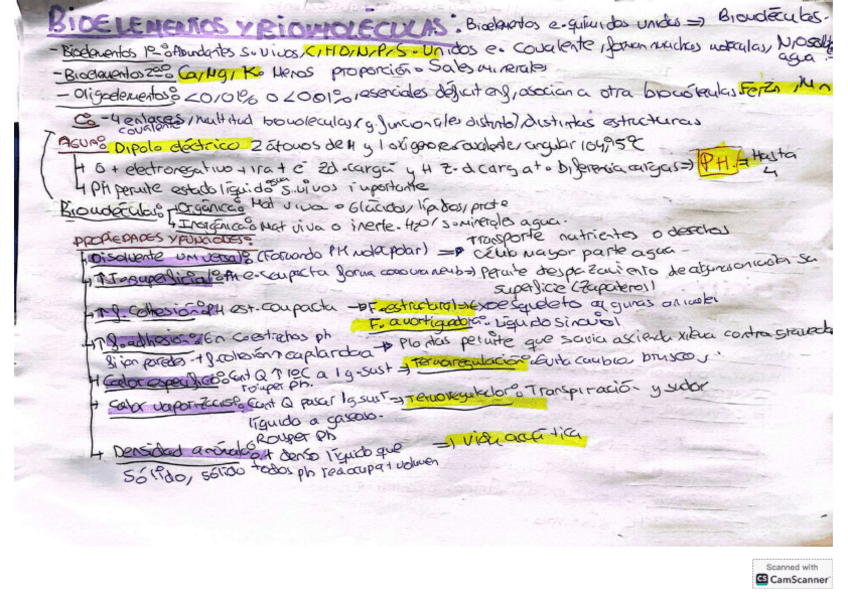 BIOELEMENTOS Y BIOMOLÉCULAS: Bioelementos e. químicos unidos => Biomoléculas.
- Bioelementos 1º: Abundantes s. vivos, C, H, O, N, P, S. Unidos e. covalente, forman muchas moléculas, N, O sol
agua.
- Bioelementos 2º: Ca, Mg, K. Menos proporción. Sales minerales
- Oligoelementos: <0,01% o <0,001%, esenciales déficit enf, asocian a otra biomoléculas. Fe, Zn, Mn
C: - 4 enlaces, multitud biomoléculas, g. funcionales distinto / distintas estructuras
covalente
AGUA: Dipolo eléctrico 2 átomos de H y 1 oxígeno e. covalente / angular 104,5ºC
O + electronegativo + e- y H Diferencia cargas => PH. => Hasta
4
PH permite estado líquido agua s. vivos importante
Biomoléculas: Orgánica: Mat viva. Glúcidos, lípidos, prote
Inorgánica: Mat viva o inerte. H2O / s. minerales agua.
PROPIEDADES Y FUNCIONES:
Transporte nutrientes o desechos
Disolvente universal: (formando PH molc polar) => Célub mayor parte agua.
↑ T. superficial: PH e. compacta forma como una => Permite desplazamiento de algunos animales su
superficie (Zapatero)
↑ f. Cohesión: PH est. compacta -> F. estructural: exoesqueleto algunos animales
F. amortiguadora: Líquido sinovial
↑ f. adhesión: En estrechos ph -> Plantas permite que savia ascienda xilema contra gravedad
fijan paredes + f. cohesión = capilaridad
Calor específico: Cant Q ↑ 1ºC a 1g. sust => Termorregulación: Evita cambio bruscos.
romper ph.
Calor vaporización: Cant Q pasar 1g sust => Termorregulador: Transpiración y sudor
líquido a gaseoso.
Romper ph
Densidad anómala: + denso líquido que => vida acuática
Sólido, sólido todos ph ocupa + volumen
Scanned with
CS CamScanner